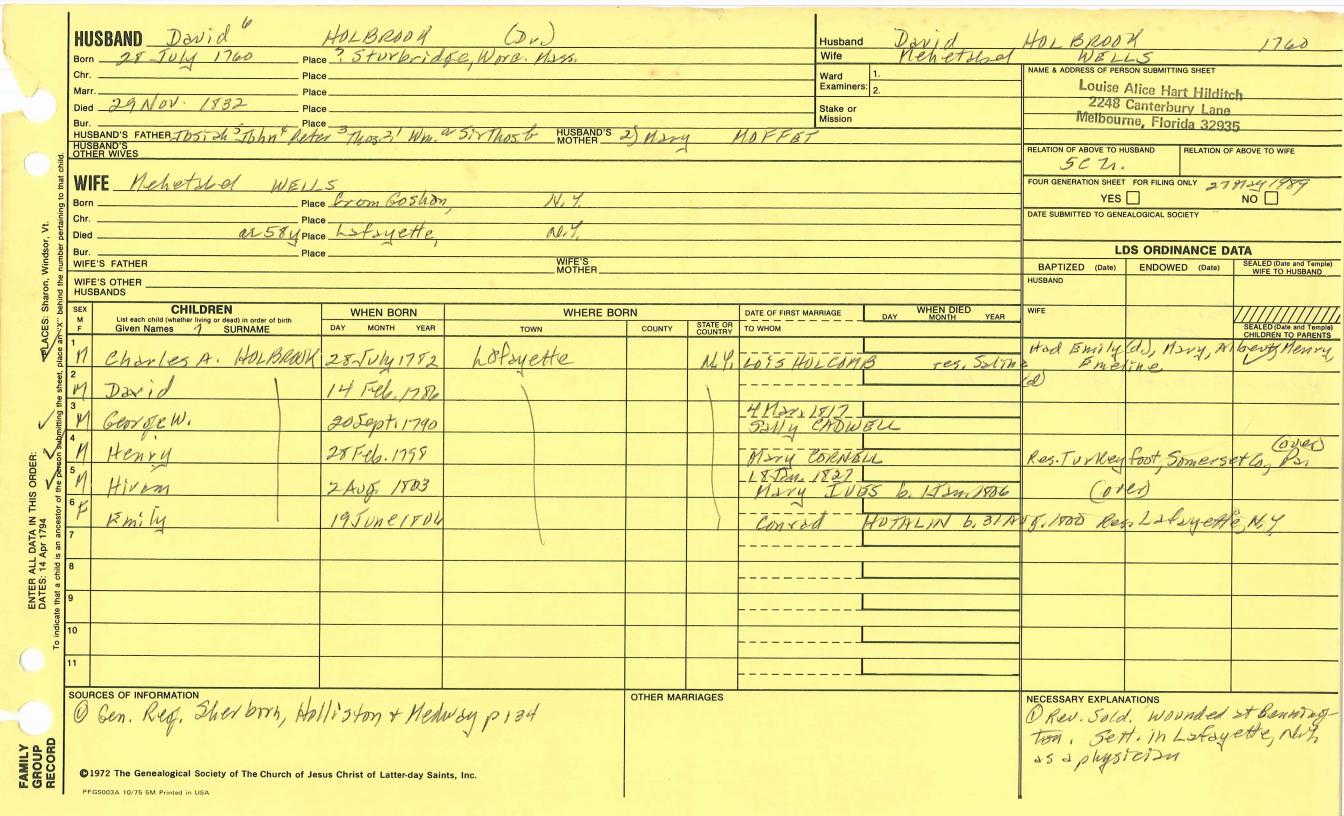 HUSBAND David 6 HOLBROOK (Dr.)
Born 28 July 1760 Place ? Sturbridge, Worc. Mass.
Chr. Place
Marr. Place
Died 29 Nov. 1832 Place
Bur. Place
HUSBAND'S FATHER Josiah 5 John 4 Peter 3 Thos 2 1 Wm. or Sir Thos b HUSBAND'S MOTHER 2) Mary MOFFET
HUSBAND'S OTHER WIVES
Husband David HOLBROOK 1760
Wife Mehetabel WELLS
Ward Examiners: 1.
2.
Stake or Mission
NAME & ADDRESS OF PERSON SUBMITTING SHEET
Louise Alice Hart Hilditch
2248 Canterbury Lane
Melbourne, Florida 32935
RELATION OF ABOVE TO HUSBAND RELATION OF ABOVE TO WIFE
5C
FOUR GENERATION SHEET FOR FILING ONLY 27 May 1989
YES NO
DATE SUBMITTED TO GENEALOGICAL SOCIETY
WIFE Mehetabel WELLS
Born Place from Goshen, N.Y.
Chr. Place
Died ae 58y Place Lafayette, N.Y.
Bur. Place
WIFE'S FATHER WIFE'S MOTHER
WIFE'S OTHER HUSBANDS
LDS ORDINANCE DATA
BAPTIZED (Date) ENDOWED (Date) SEALED (Date and Temple) WIFE TO HUSBAND
HUSBAND
WIFE
SEALED (Date and Temple) CHILDREN TO PARENTS
SEX M F CHILDREN WHEN BORN WHERE BORN DATE OF FIRST MARRIAGE WHEN DIED
List each child (whether living or dead) in order of birth
Given Names SURNAME DAY MONTH YEAR TOWN COUNTY STATE OR COUNTRY TO WHOM DAY MONTH YEAR
1 M Charles A. HOLBROOK 28 July 1782 Lafayette N.Y. Lois HOLCOMB res. Saline Had Emily (d.), Mary, Albert, Henry
Emeline
(d)
2 M David 14 Feb. 1786
3 M George W. 20 Sept. 1790 4 Mar. 1817
Sally CADWELL
(over)
4 M Henry 28 Feb. 1798 Mary CORNELL Res. Turkeyfoot, Somerset Co., Pa.
5 M Hiram 2 Aug. 1803 18 Jan. 1827
Mary IVES b. 1 Jan. 1806 (over)
6 F Emily 19 June 1806 Conrad HOTALIN b. 31 Aug. 1800 Res. Lafayette, N.Y.
7
8
9
10
11
SOURCES OF INFORMATION
① Gen. Reg. Sherborn, Holliston & Medway p 134
OTHER MARRIAGES
NECESSARY EXPLANATIONS
① Rev. Sold. wounded at Benning-
ton. Sett. in Lafayette, N.Y.
as a physician
©1972 The Genealogical Society of The Church of Jesus Christ of Latter-day Saints, Inc.
PFGS003A 10/75 5M Printed in USA
FAMILY GROUP RECORD
ENTER ALL DATA IN THIS ORDER:
DATES: 14 Apr 1794
PLACES: Sharon, Windsor, Vt.
To indicate that a child is an ancestor of the person submitting the sheet, place an "X" behind the number pertaining to that child.